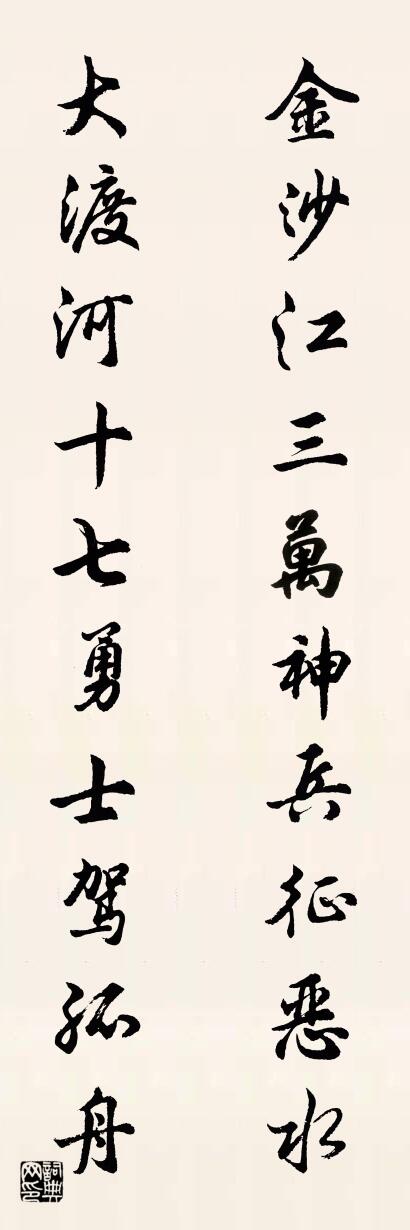 金沙江三萬神兵征惡水
大渡河十七勇士駕孤舟
詞典网印